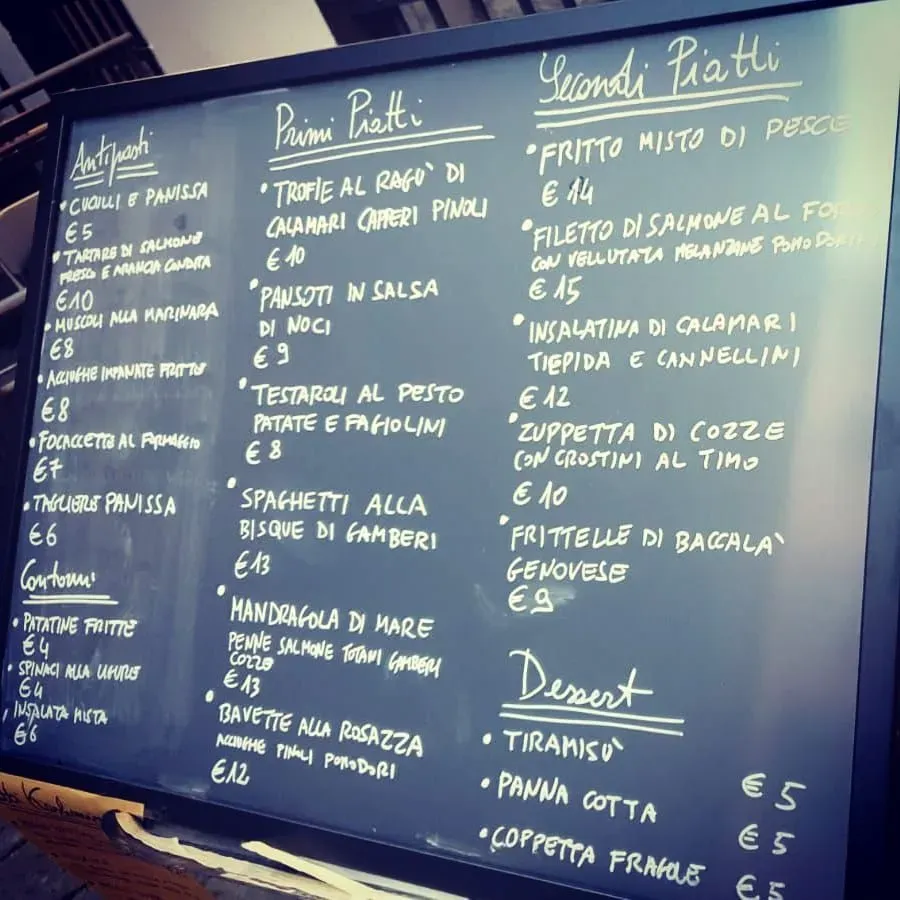 Antipasti
• CUCULLI E PANISSA
€5
• TARTARE DI SALMONE
FRESCO E ARANCIA CONDITA
€10
• MUSCOLI ALLA MARINARA
€8
• ACCIUGHE IMPANATE FRITTE
€8
• FOCACCETTE AL FORMAGGIO
€7
• TAGLIERE PANISSA
€6
Contorni
• PATATINE FRITTE
€4
• SPINACI ALLA LIGURE
€4
• INSALATA MISTA
€6
Primi Piatti
• TROFIE AL RAGU' DI
CALAMARI CAPPERI PINOLI
€10
• PANSOTI IN SALSA
DI NOCI
€9
• TESTAROLI AL PESTO
PATATE E FAGIOLINI
€8
• SPAGHETTI ALLA
BISQUE DI GAMBERI
€13
• MANDRAGOLA DI MARE
PENNE SALMONE TOTANI GAMBERI
COZZE
€13
• BAVETTE ALLA ROSAZZA
ACCIUGHE PINOLI POMODORI
€12
Secondi Piatti
• FRITTO MISTO DI PESCE
€14
• FILETTO DI SALMONE AL
CON VELLUTATA MELANZANE
€15
• INSALATINA DI CALAMARI
TIEPIDA E CANNELLINI
€12
• ZUPPETTA DI COZZE
CON CROSTINI AL TIMO
€10
• FRITTELLE DI BACCALA'
GENOVESE
€9
Dessert
• TIRAMISU' €5
• PANNA COTTA €5
• COPPETTA FRAGOLE €5